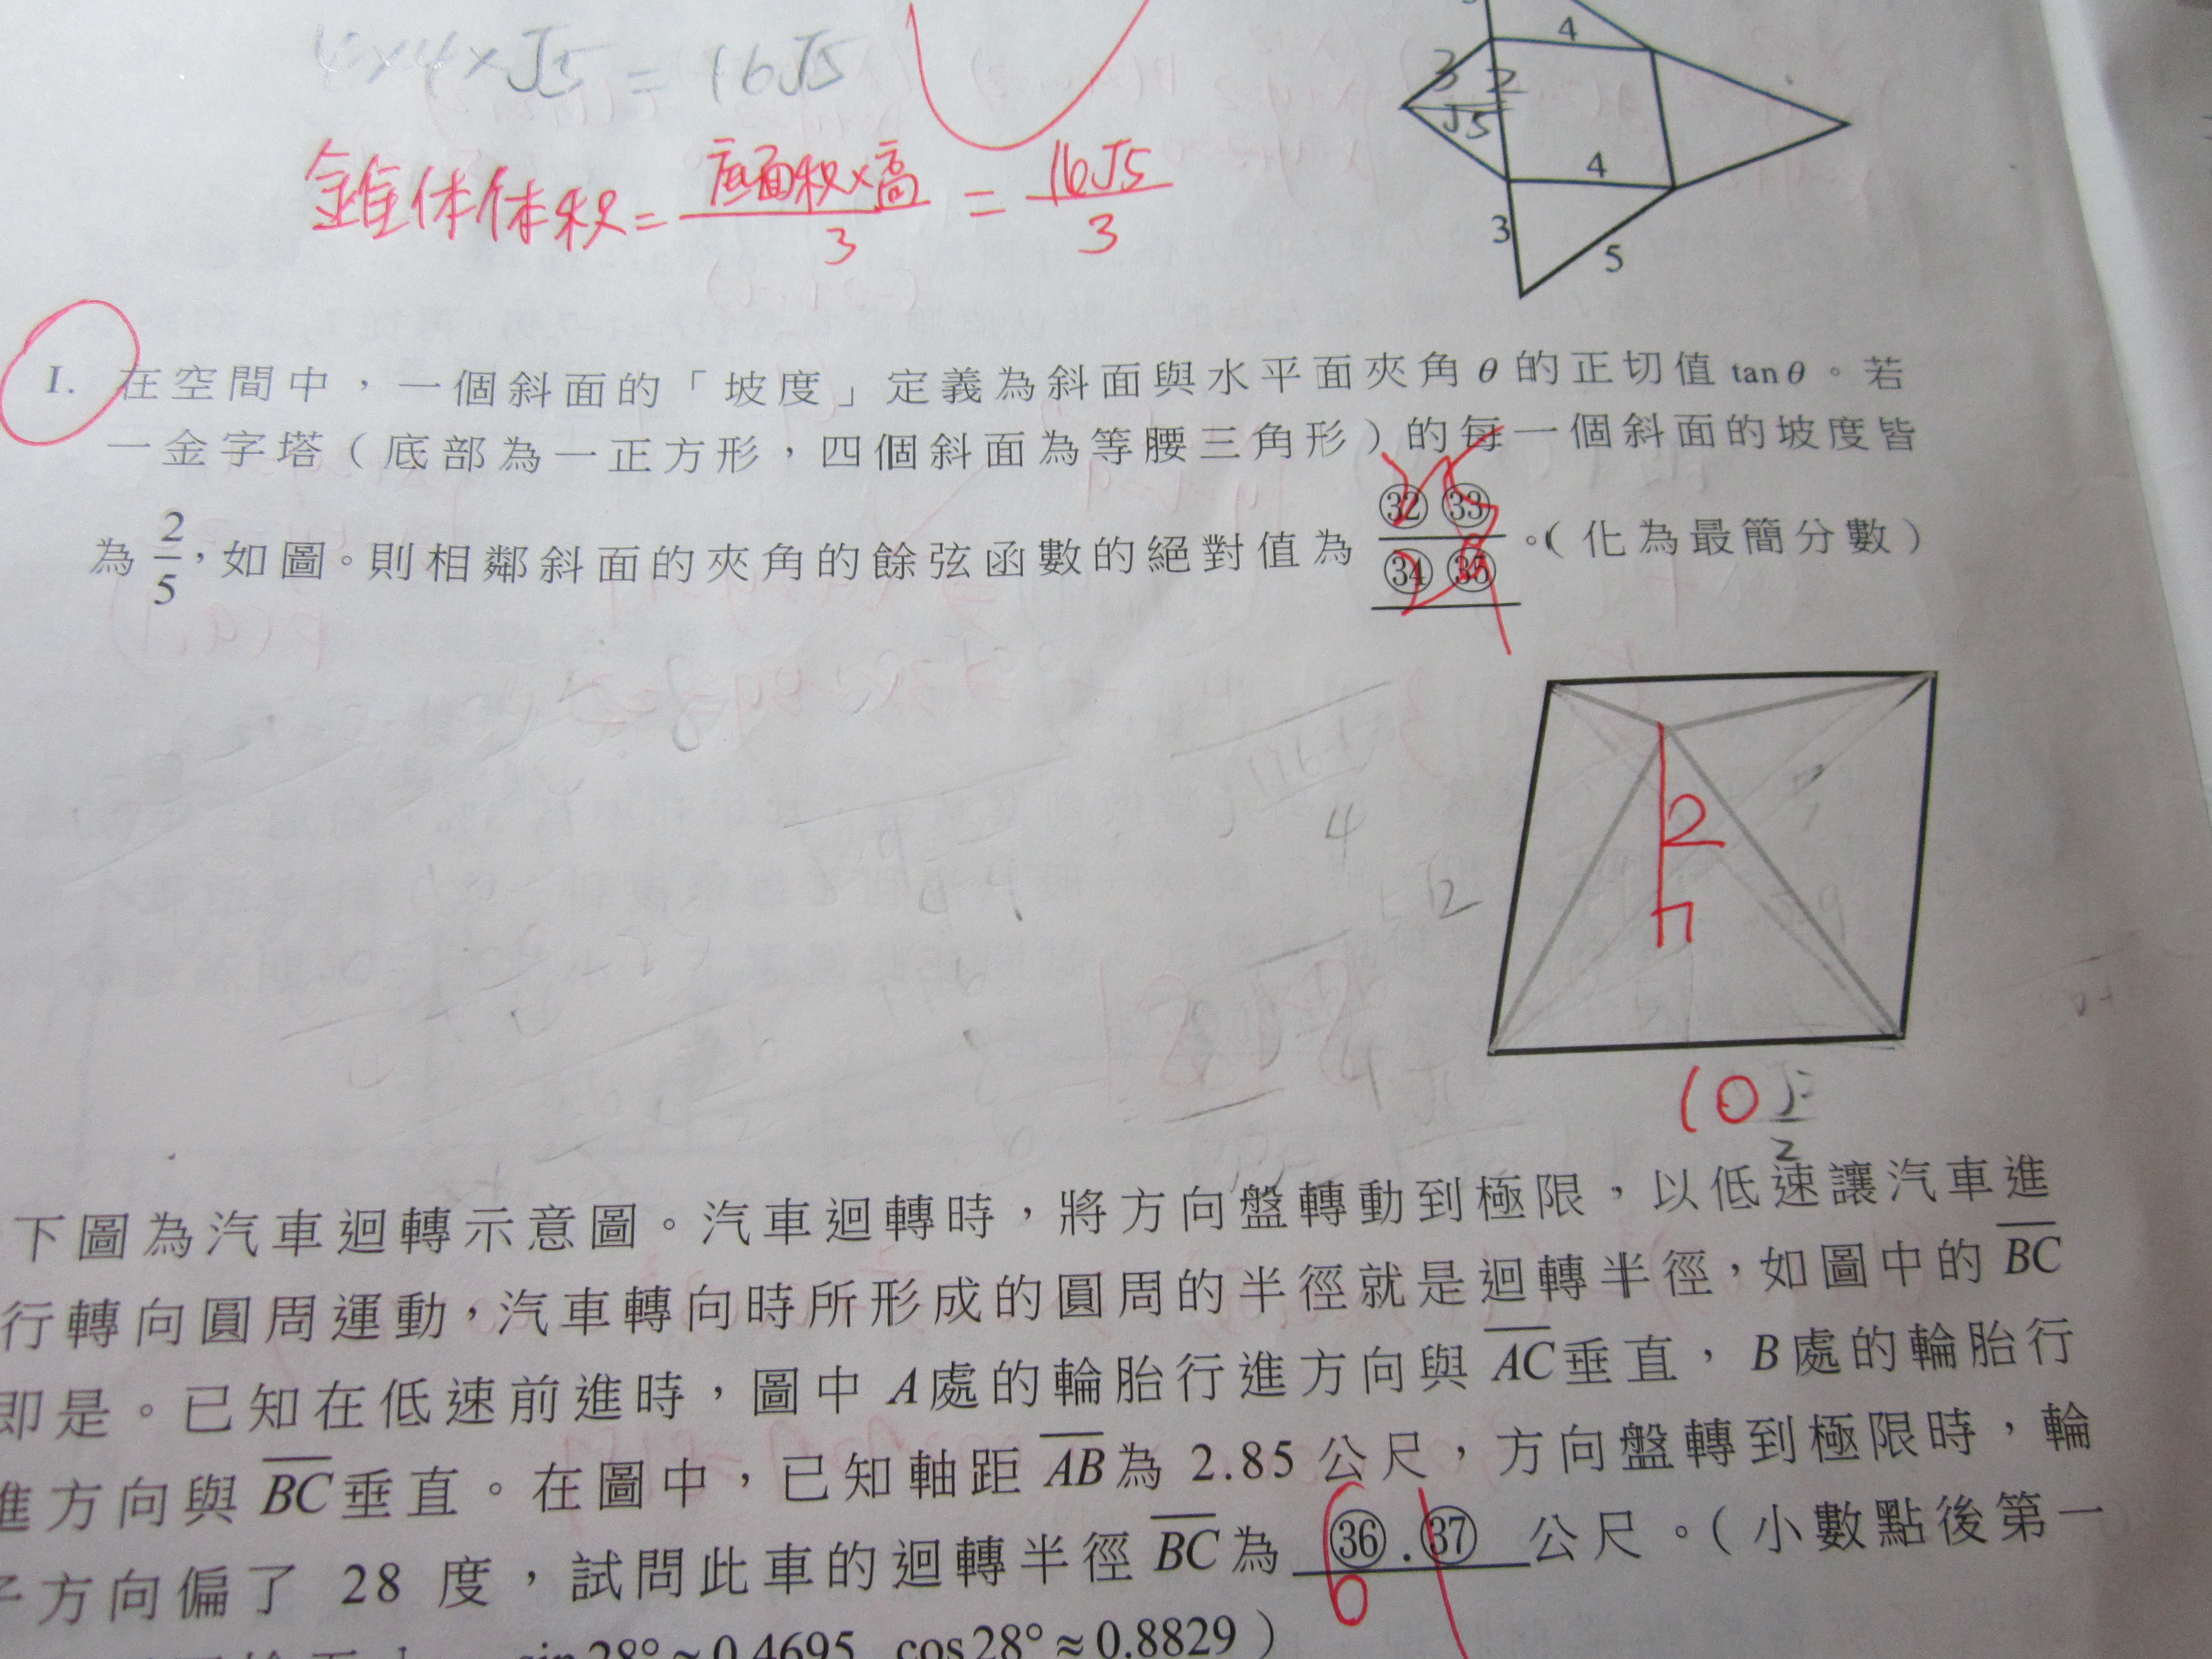 4×4×√5 = 16√5
錐体体积 = 底面积×高 / 3 = 16√5 / 3
4
3
2
√5
4
3
5
I. 在空間中，一個斜面的「坡度」定義為斜面與水平面夾角θ的正切值 tanθ。若
一金字塔（底部為一正方形，四個斜面為等腰三角形）的每一個斜面的坡度皆
為 2/5，如圖。則相鄰斜面的夾角的餘弦函數的絕對值為 ㉜㉝/㉞㉟。（化為最簡分數）
25
29
2
4
10
下圖為汽車迴轉示意圖。汽車迴轉時，將方向盤轉動到極限，以低速讓汽車進
行轉向圓周運動，汽車轉向時所形成的圓周的半徑就是迴轉半徑，如圖中的 BC
即是。已知在低速前進時，圖中 A處的輪胎行進方向與 AC垂直，B處的輪胎行
進方向與 BC垂直。在圖中，已知軸距 AB為 2.85 公尺，方向盤轉到極限時，輪
子方向偏了 28 度，試問此車的迴轉半徑 BC為 ㊱.㊲ 公尺。（小數點後第一
6 1
sin28°≈0.4695，cos28°≈0.8829）